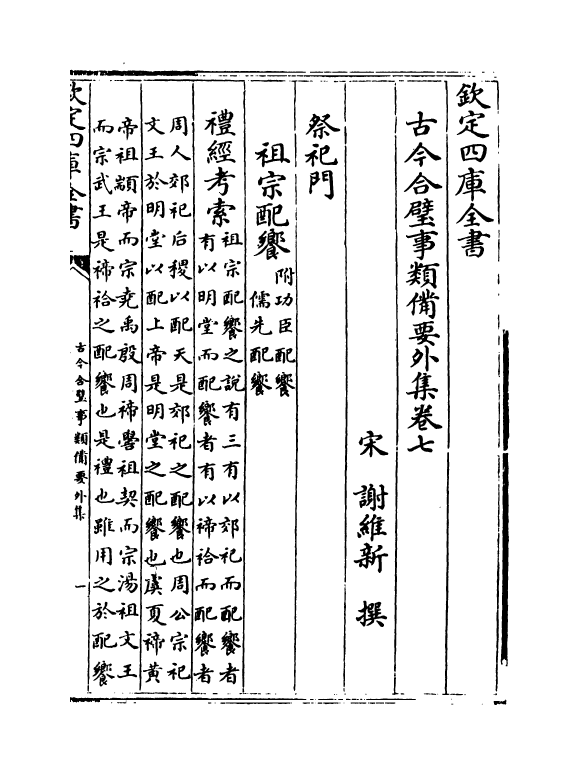 欽定四庫全書
古今合璧事類備要外集卷七
宋 謝維新 撰
祭祀門
祖宗配饗
附功臣配饗
儒先配饗
禮經考索
祖宗配饗之說有三有以郊祀而配饗者
有以明堂而配饗者有以禘祫而配饗者
周人郊祀后稷以配天是郊祀之配饗也周公宗祀
文王於明堂以配上帝是明堂之配饗也虞夏禘黄
帝祖顓帝而宗堯禹殷周禘嚳祖契而宗湯祖文王
而宗武王是禘祫之配饗也是禮也雖用之於配饗
欽定四庫全書
古今合璧事類備要外集
一